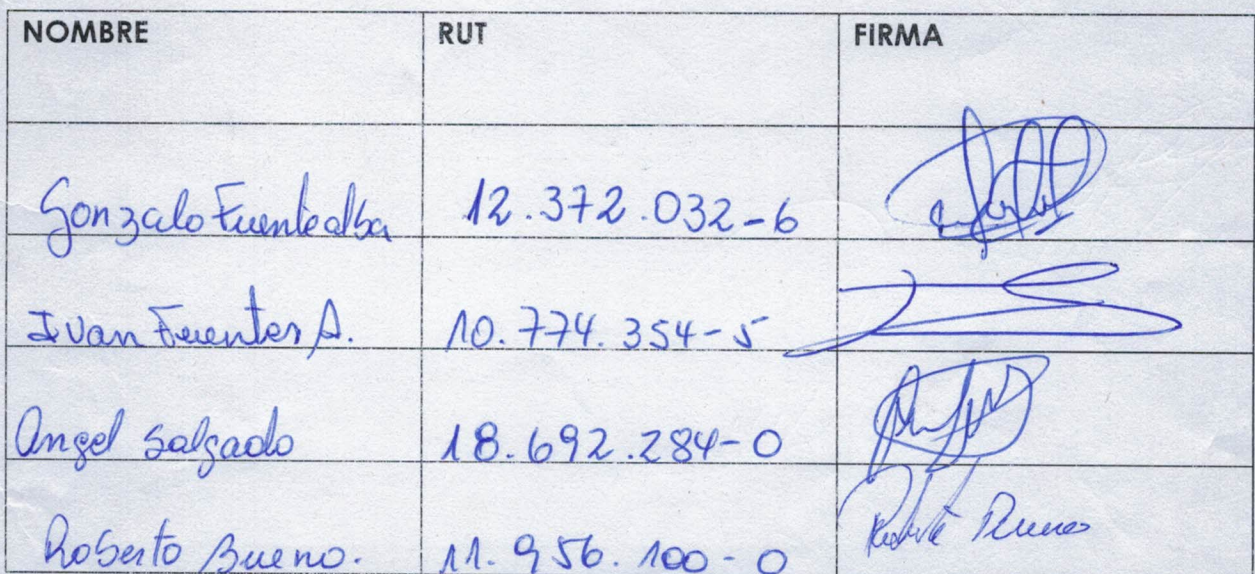 NOMBRE RUT FIRMA
Gonzalo Fuentealba 12.372.032-6
Ivan Fuentes A. 10.774.354-5
Angel Salgado 18.692.284-0
Roberto Bueno. 11.956.100-0